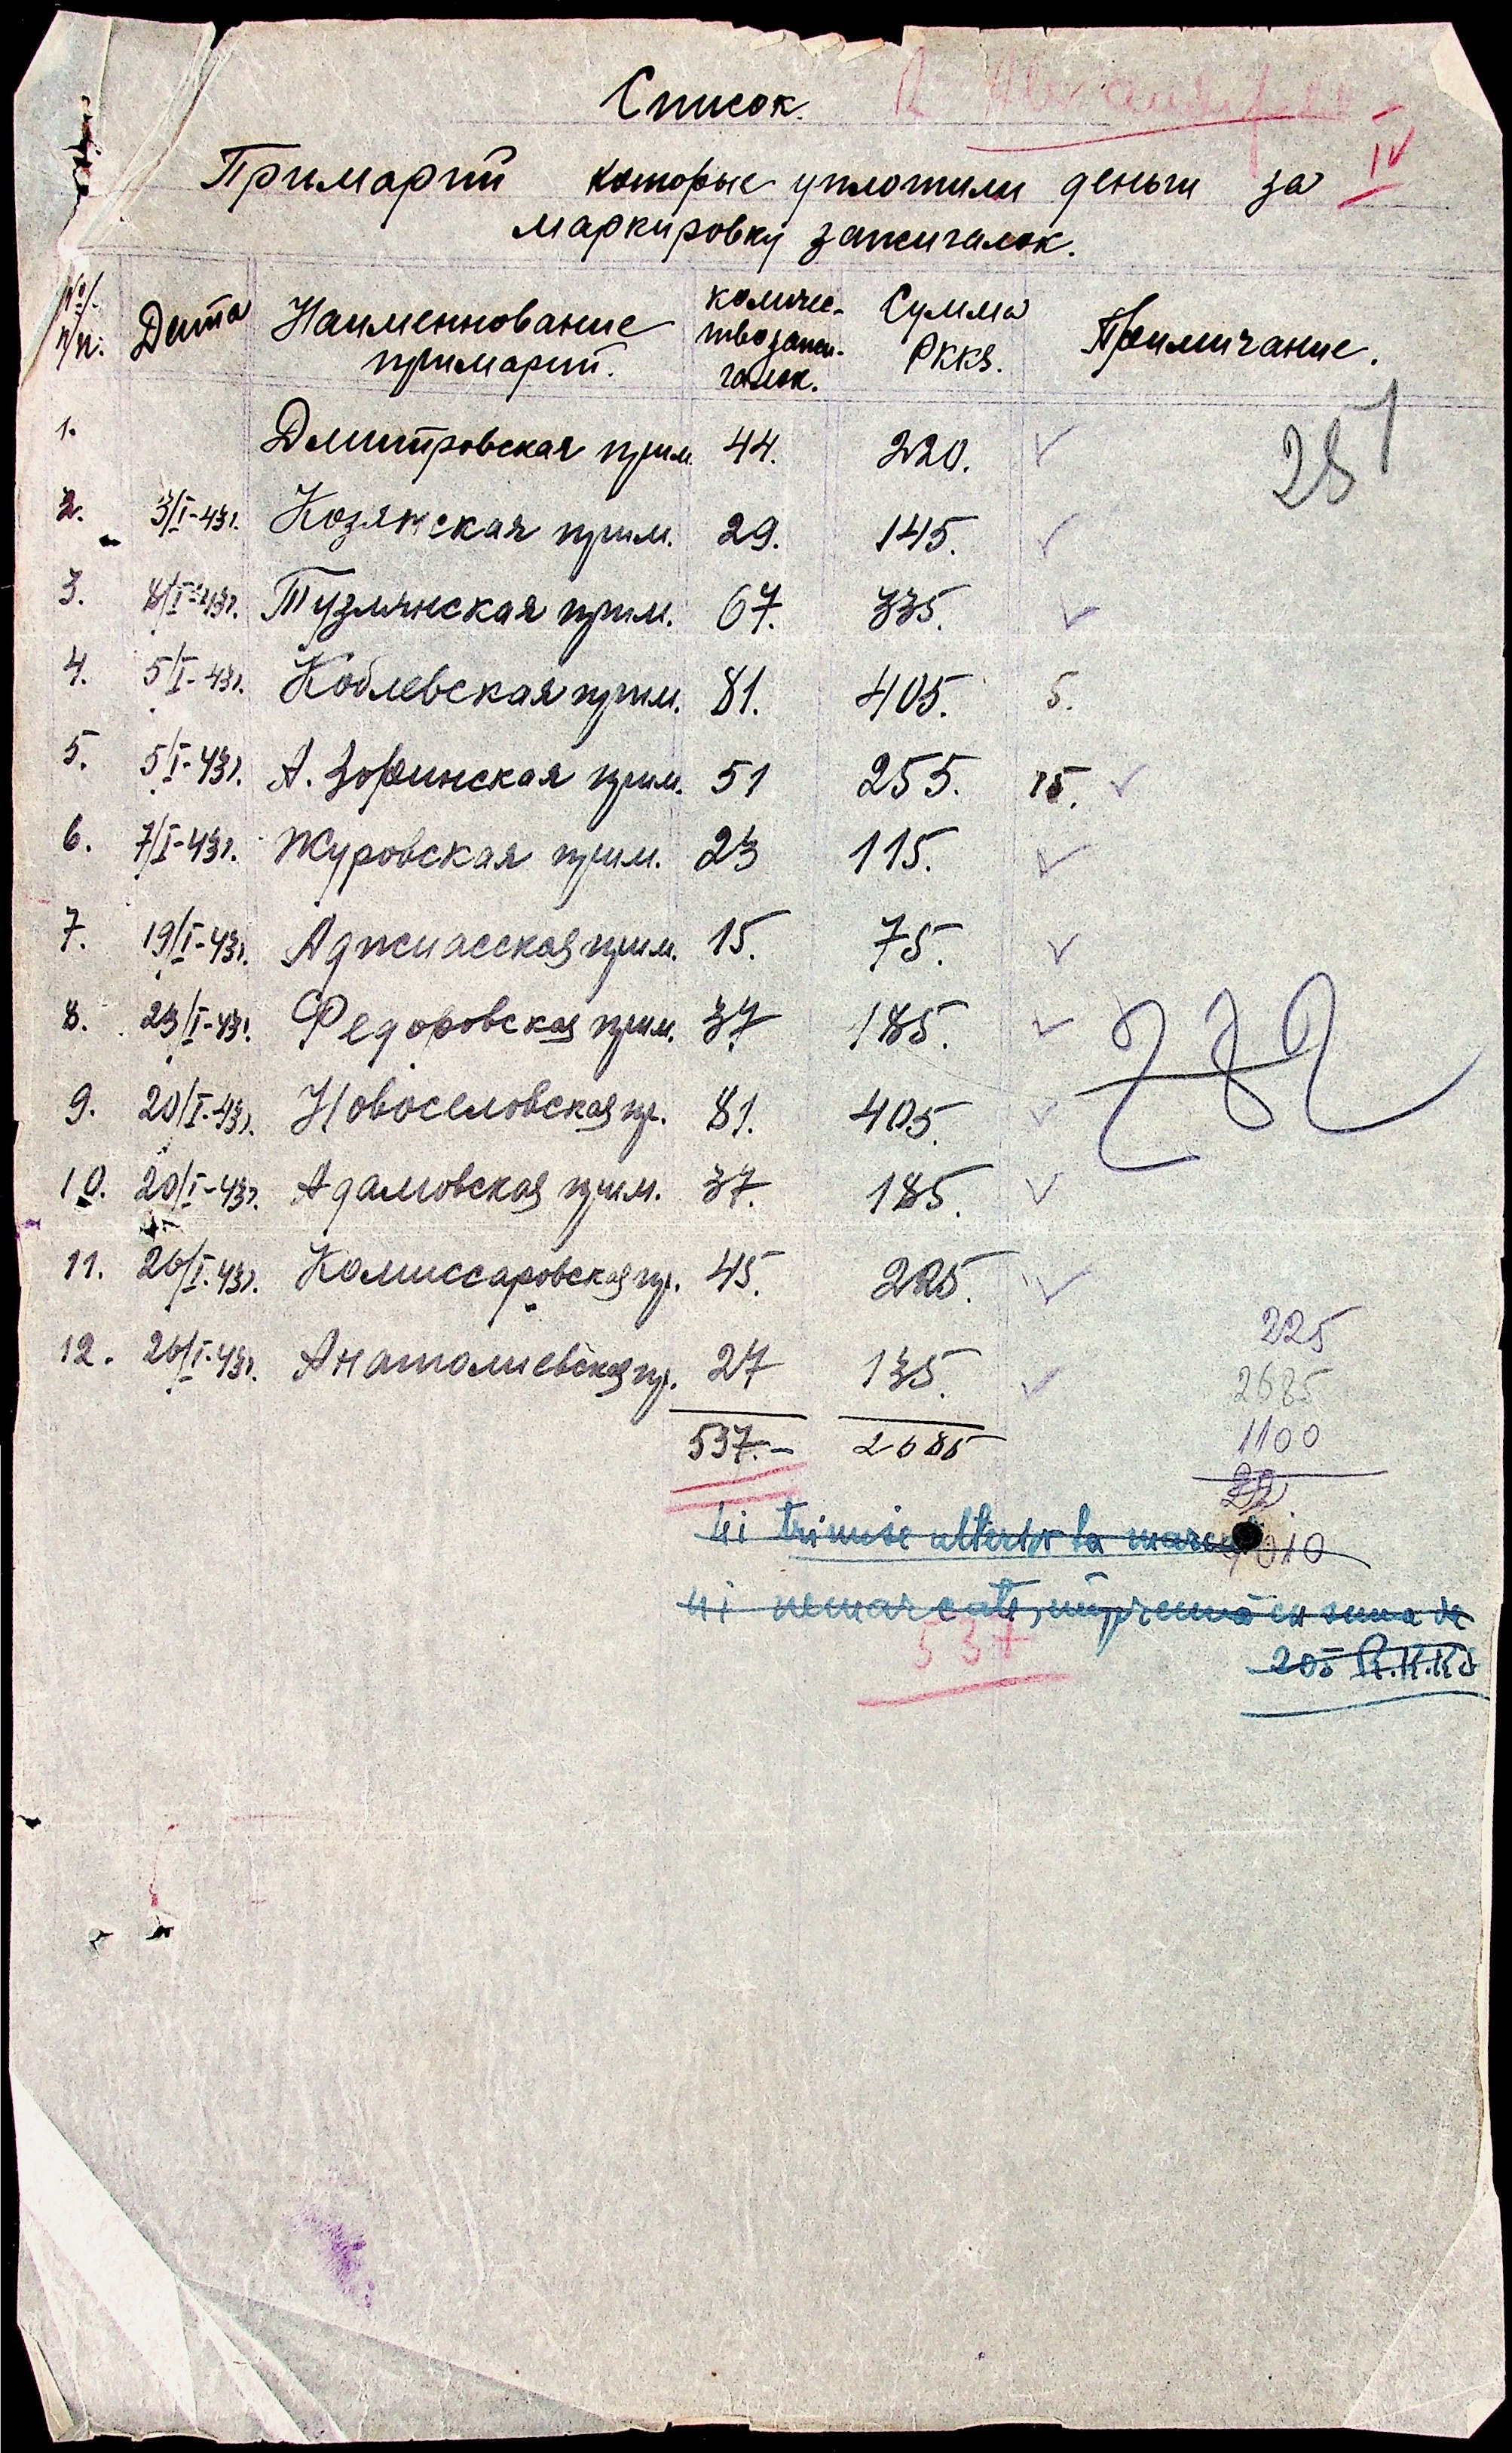 Список.
IV
Примарий которые уплотили деньги за
маркировку зажигалок.
№/п/п. Дата Наименнование примарий. количес-тво зажи-галок. Сумма РККЯ. Примичание.
1. Дмитровская прим. 44. 220. ✓
281
2. 3/I-43г. Козлянская прим. 29. 145. ✓
3. 8/I-43г. Тузлянская прим. 67. 335. ✓
4. 5/I-43г. Коблевская прим. 81. 405. 5.
5. 5/I-43г. А. прим. 51 255. 15. ✓
6. 7/I-43г. Журовская прим. 23 115. ✓
7. 19/I-43г. Аджиасская прим. 15. 75. ✓
8. 23/I-43г. Федоровская прим. 37 185. ✓
282
9. 20/I-43г. Новоселовская пр. 81. 405. ✓
10. 20/I-43г. Адамовская прим. 37. 185. ✓
11. 26/I-43г. Комиссаровская пр. 45. 225. ✓
12. 26/I-43г. Анатолиевская пр. 27 135. ✓
225
2685
1100
537.- 2685
4010
41 trimise ulterior la marcat
41 nemarcate, împreună cu suma de
537
205 R.K.K.S